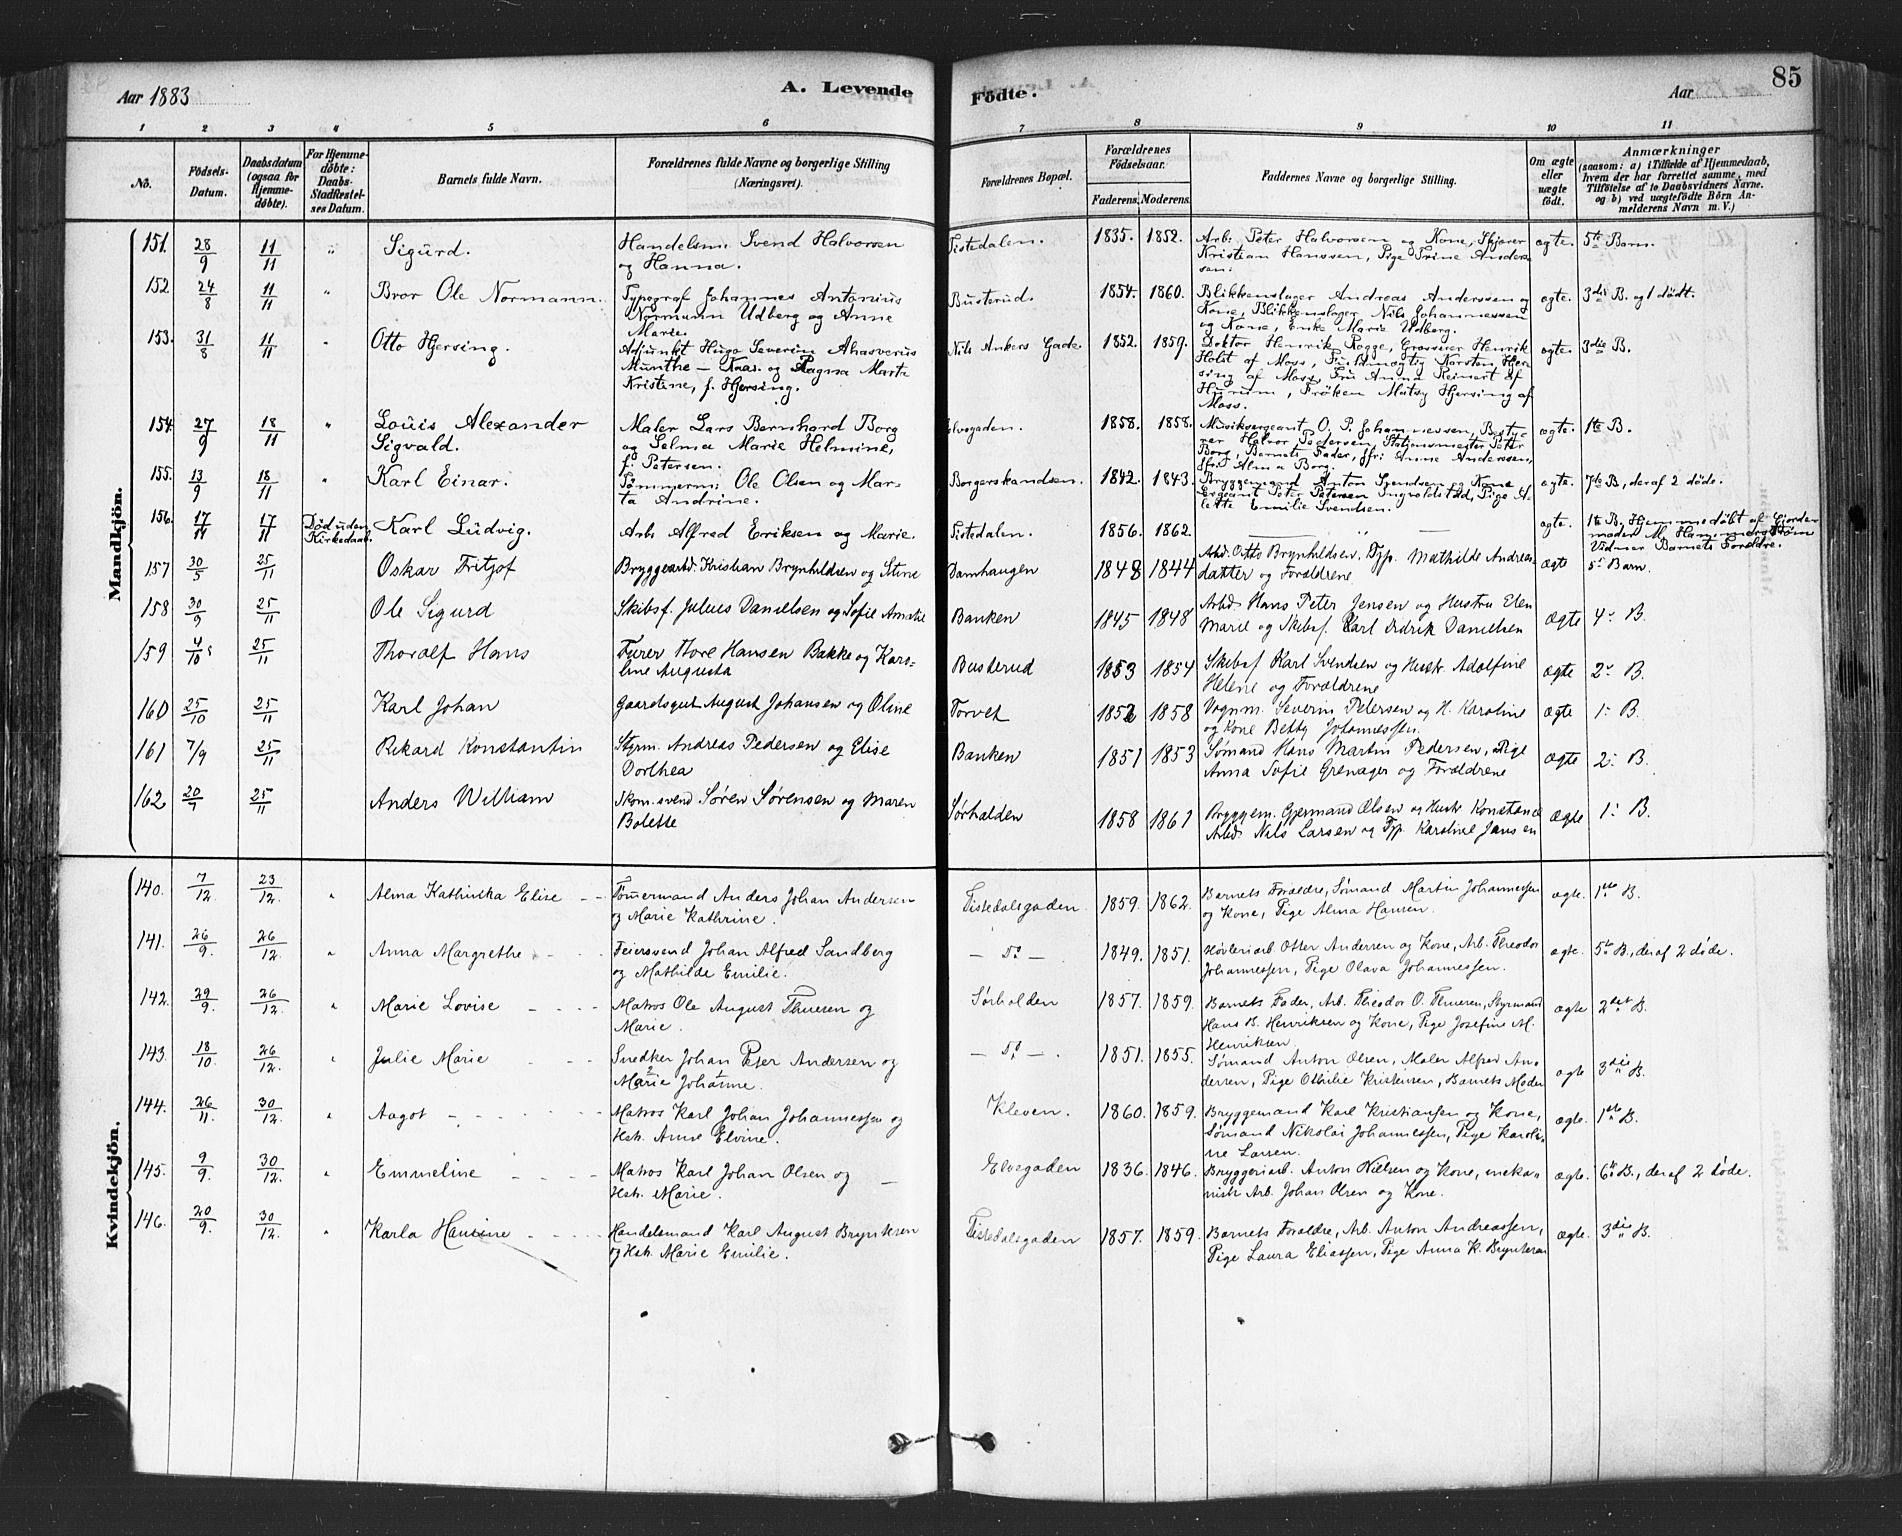 Aar 1883
A. Levende
Fødte.
Aar
85
1 2 3 4 5 6 7 8 9 10 11
No.
Fødsels-
Datum.
Daabsdatum
(ogsaa for
Hjemme-
døbte).
For Hjemme-
døbte:
Daabs-
Stadfæstel-
ses Datum.
Barnets fulde Navn.
Forældrenes fulde Navne og borgerlige Stilling
(Næringsvei).
Forældrenes Bopæl.
Forældrenes
Fødselsaar.
Faderens. Moderens.
Faddernes Navne og borgerlige Stilling.
Om ægte
eller
uægte
født.
Anmærkninger
(saasom: a) i Tilfælde af Hjemmedaab,
hvem der har forrettet samme, med
Tilføielse af to Daabsvidners Navne.
og b) ved uægtefødte Børn An-
melderens Navn m. V.)
Mandkjön.
151. 28/9 11/11 " Sigurd.
Handelsm. Svend Halvorsen
og Hanna.
Tistedalen. 1835. 1852.
Arb. Peter Halvorsen og Kone, Skjører
Kristian Hanssen, Pige Trine Anders-
sen.
ægte. 5te Barn.
152. 24/8 11/11 " Bror Ole Normann.
Typograf Johannes Antonius
Normann Udberg og Anne
Marie.
Busterud. 1854. 1860.
Blikkenslager Andreas Anderssen og
Kone, Blikkenslager Nils Johannessen
og Kone, Enke Marie Udberg.
ægte. 3die B. og 1 dødt.
153. 31/8 11/11 " Otto Hjersing.
Adjunkt Hugo Severin Ahasverus
Munthe – Kaas. og Ragna Marti
Kristine, f. Hjersing.
Nils Ankers Gade. 1852. 1859.
Doktor Henrik Rogge, Grosserer Henrik
Holst af Moss, Fuldmægtig Karsten Hjer-
sing af Moss, Fru Anna Reinert af
Hurum, Frøken Matsy Hjersing af
Moss.
ægte. 3die B.
154. 27/9 18/11 " Louis Alexander
Sigvald.
Maler Lars Bernhard Borg
og Selma Marie Helmine,
f. Petersen.
Elvegaden. 1858. 1858.
Musiksergeant O. P. Johannessen, Besty-
rer Halvor Pedersen, Stationsmester Peter
Borg, Barnets Fader, Frk. Anne Anderssen,
Frk. Alma Borg.
ægte. 1te B.
155. 13/9 18/11 " Karl Einar.
Tømmerm. Ole Olsen og Mar-
ta Andrine.
Borgerskandsen. 1842. 1843.
Bryggemand Anton Svendsen og Kone
Sergeant Peter Petersen Ingvoldstad, Pige A-
lette Emilie Svendsen.
ægte. 7de B., deraf 2 døde.
156. 17/11 17/11 Død uden
Kirkedaab. Karl Ludvig.
Arb. Alfred Eriksen og Marie.
Tistedalen. 1856. 1862. —
ægte. 1te B. Hjemmedøbt af Gjorde-
moder M. Hammerstrøm
Vidner Barnets Forældre.
157 30/5 25/11 Oskar Fritjof
Bryggearbd. Kristian Brynhildsen og Stine
Damhaugen 1848 1844
Arbd. Otto Brynhildsen, Tjp. Mathilde Andreas-
datter og Forældrene
ægte 5. Barn.
158 30/9 25/11 Ole Sigurd
Skibsf. Julius Danielsen og Sofie Amalie
Banken 1845 1848
Arbd. Hans Peter Jensen og Hustru Elen
Marie og Skibsf. Karl Didrik Danielsen
ægte 4. B.
159 4/10 25/11 Thoralf Hans
Furer Thore Hansen Bakke og Karo-
line Augusta
Busterud 1853 1854
Skibsf. Karl Svendsen og Hustr. Adolfine
Helene og Forældrene
ægte 2. B.
160 25/10 25/11 Karl Johan
Gaardsgut August Johansen og Oline
Torvet 1852 1858
Vognm. Severin Petersen og H. Karoline
og Kone Betty Johannessen.
ægte 1. B.
161 7/9 25/11 Rikard Konstantin
Styrm. Andreas Pedersen og Elise
Dorthea
Banken 1851 1853
Sømand Hans Martin Pedersen, Pige
Anna Sofie Grenager og Forældrene
ægte 2. B.
162 20/7 25/11 Anders William
Skom.svend Søren Sørensen og Maren
Bolette
Sørhalden 1858 1861
Bryggem. Gjermand Olsen og Hustr. Konstance
Arbd. Nils Larsen og Tjp. Karoline Jansen
ægte 1. B.
Kvindekjön.
140. 7/12 23/12 " Alma Kathinka Elise
Tømermand Anders Johan Andersen
og Marie Kathrine.
Tistedalsgaden. 1859. 1862.
Barnets Forældre, Sømand Martin Johannessen
og Kone, Pige Alma Hansen.
ægte. 1ste B.
141. 26/9. 26/12. " Anna Margrethe
Feiersvend Johan Alfred Sandberg
og Mathilde Emilie.
— Do — 1849. 1851.
Høvleriarb. Otter Andersen og Kone, Arb. Theodor
Johannessen, Pige Olava Johannessen.
ægte. 5te B., deraf 2 døde.
142. 29/9. 26/12. " Marie Lovise
Matros Ole August Thuesen og
Marie.
Sørhalden 1857. 1859.
Barnets Fader, Arb. Theodor O. Thuesen, Styrmand
Hans B. Henriksen og Kone, Pige Josefine M.
Henriksen.
ægte 2det B.
143. 18/10. 26/12. " Julie Marie
Snedker Johan Peter Andersen og
Marie Johanne.
— Do — 1851. 1855.
Sømand Anton Olsen, Maler Alfred An-
dersen, Pige Othilie Kristensen, Barnets Moder
ægte 3die B.
144. 26/11. 30/12. " Aagot
Matros Karl Johan Johannessen og
Hst. Anne Elvine.
Kleven. 1860. 1859.
Bryggemand Karl Kristiansen og Kone,
Sømand Nikolai Johannessen, Pige Karoli-
ne Larsen.
ægte. 1ste B.
145. 9/9. 30/12. " Emmeline
Matros Karl Johan Olsen og
Hst. Marie.
Elvegaden 1836. 1846.
Bryggeriarb. Anton Nielsen og Kone, meka-
nisk Arb. Johan Olsen og Kone.
ægte. 6te B., deraf 2 døde.
146. 20/9. 30/12. " Karla Hansine
Handelsmand Karl August Bryniksen
og Hst. Marie Emilie.
Tistedalsgaden 1857. 1859.
Barnets Forældre, Arb. Anton Andreassen,
Pige Laura Eliassen, Pige Anna K. Bryniksen
ægte. 3die B.